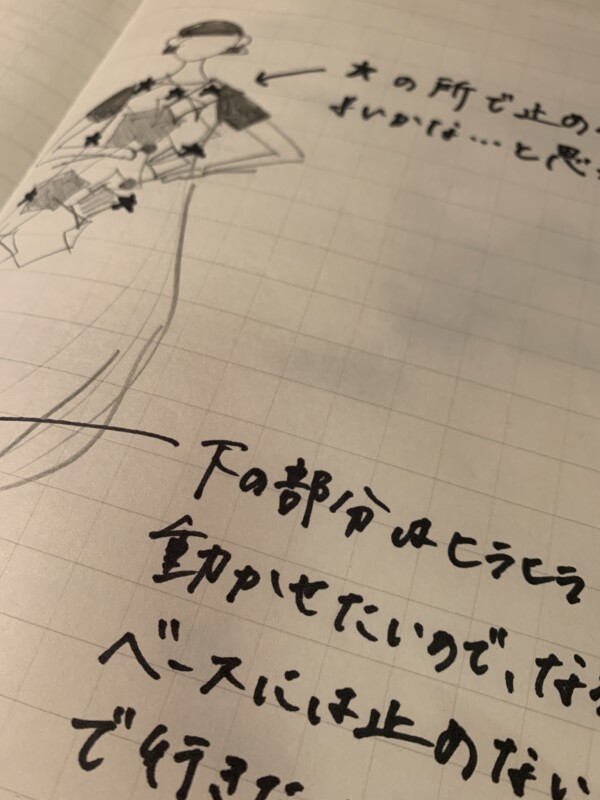 ★の所で止め
よいかな…と思
下の部分はヒラヒラ
動かせたいので、な
ベースには止めない
で行きた